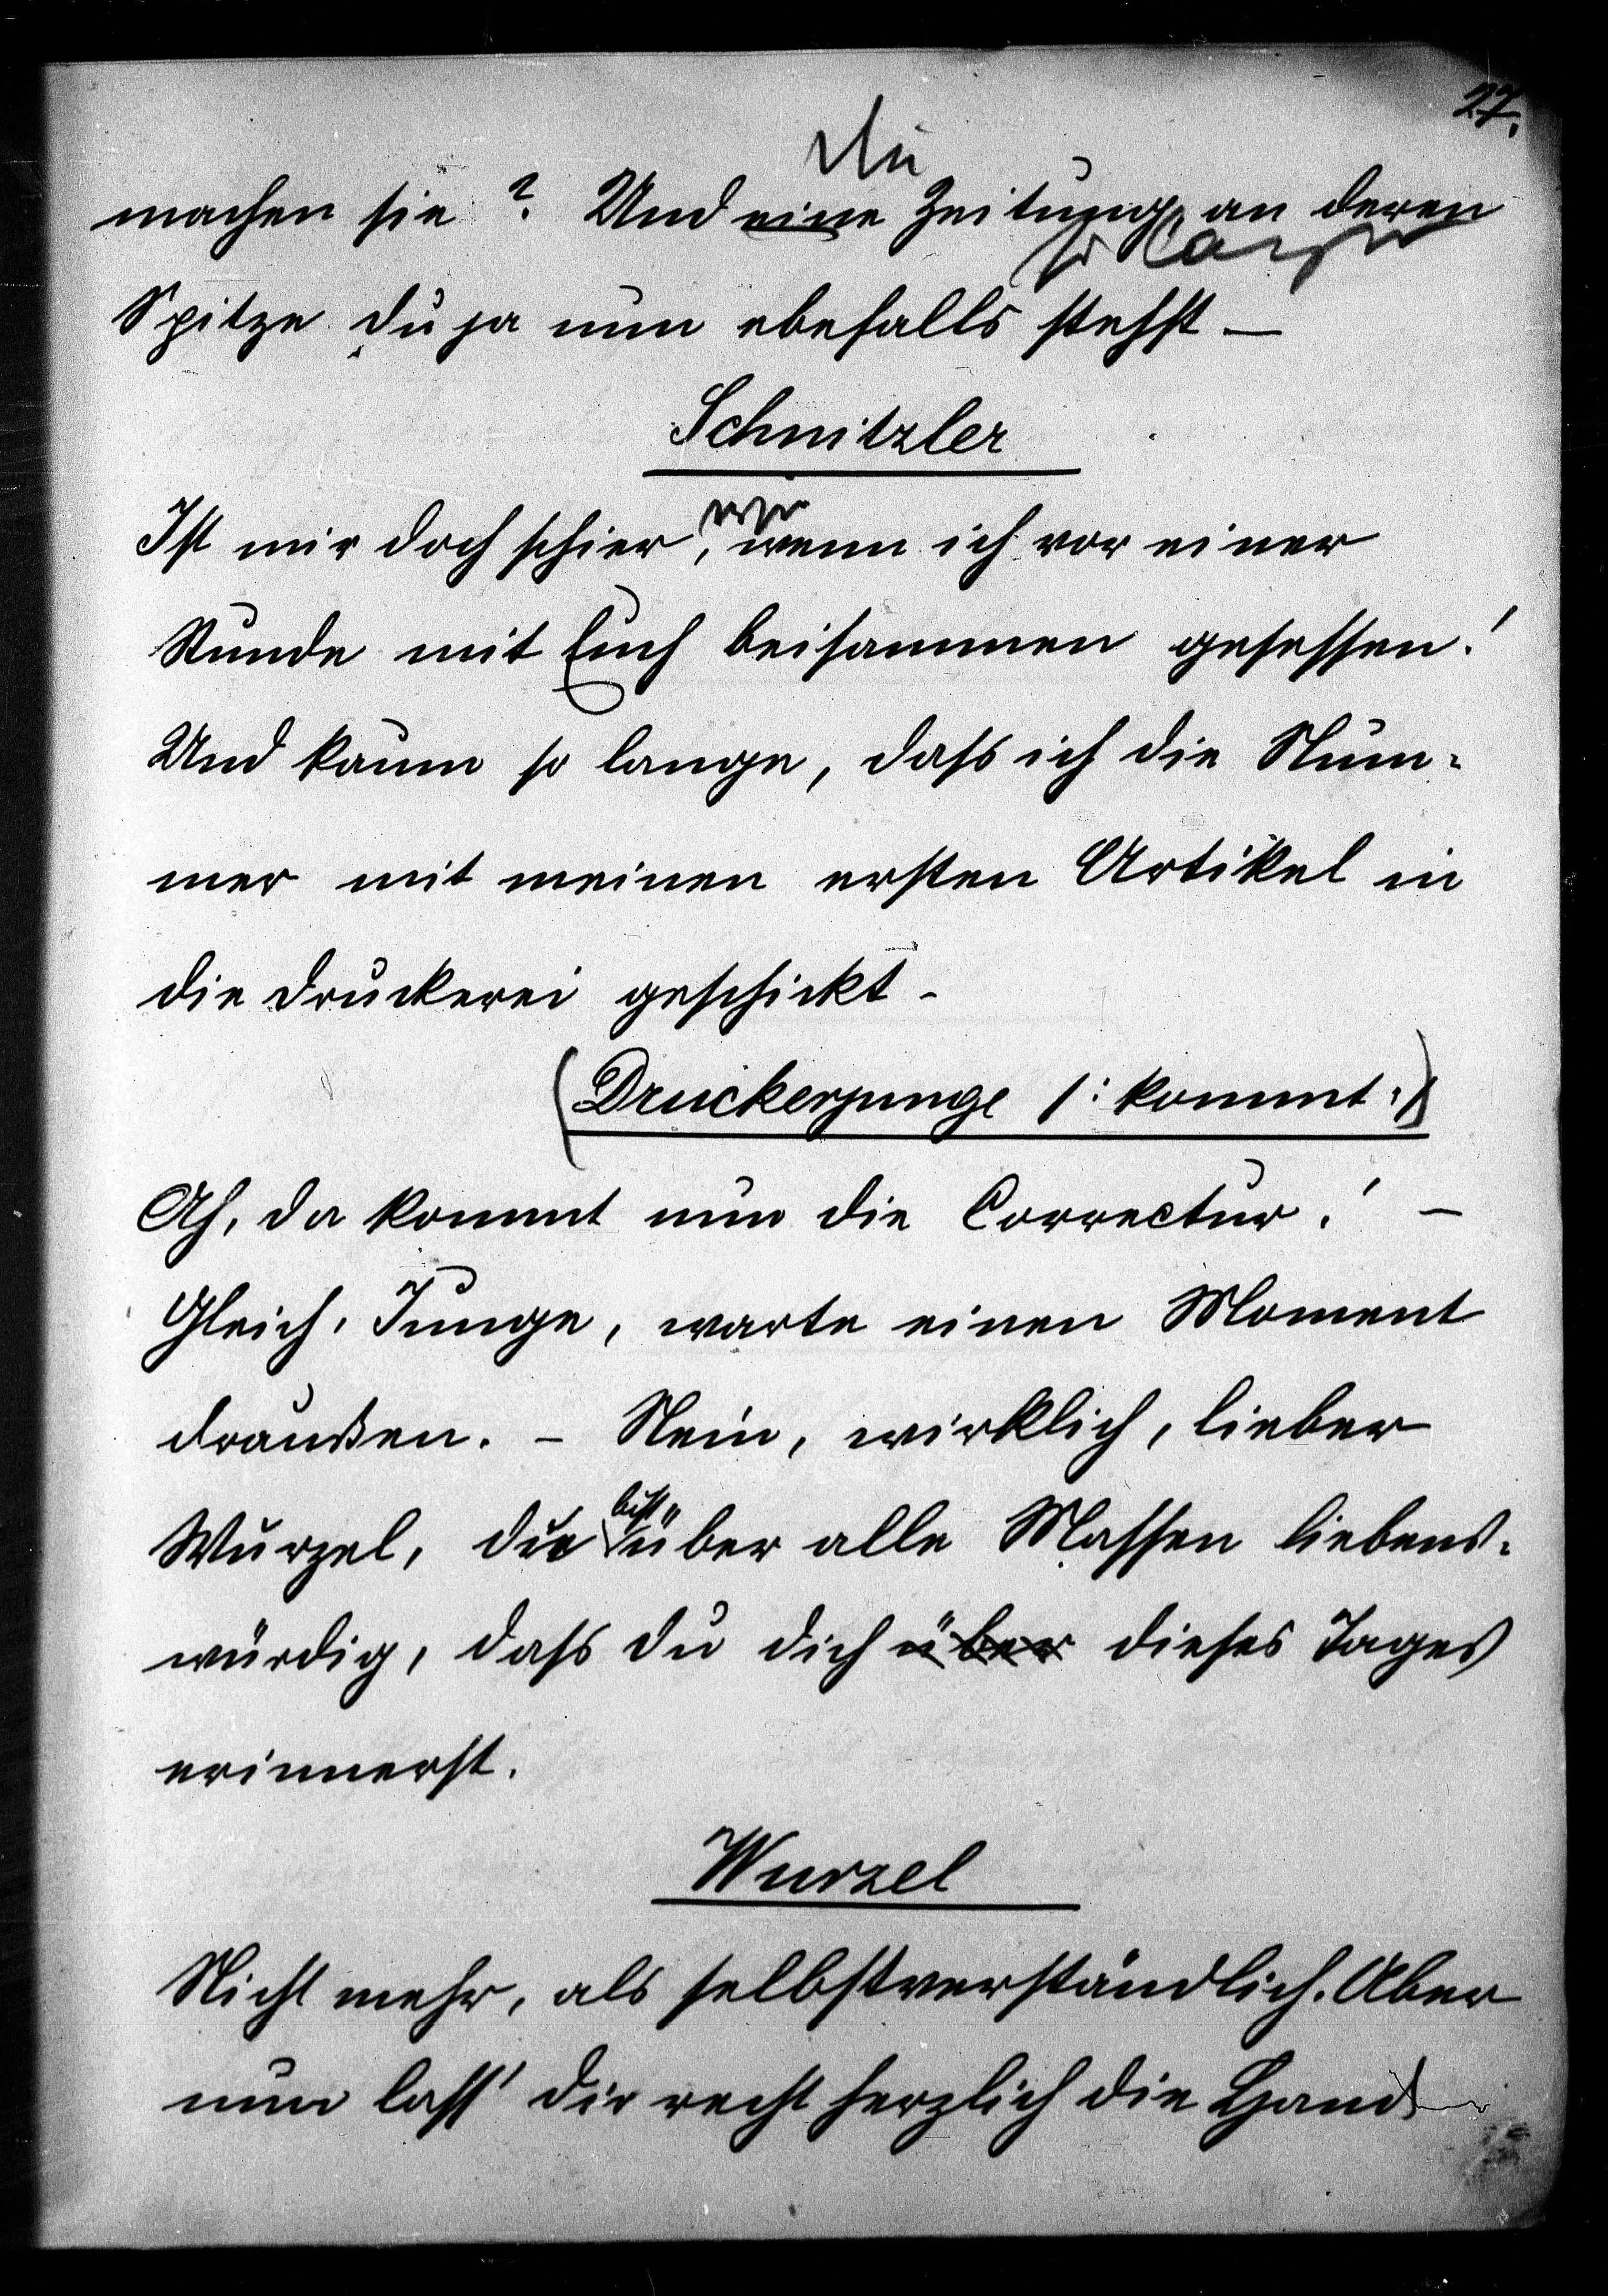 27.
Du
machen sie? Und eine Zeitung, an deren
Spitze du ja nun ebefalls stehst –
Schnitzler
wie
Ist mir doch schier, wenn ich vor einer
Stunde mit Euch beisammen gesessen!
Und kaum so lange, dass ich die Num-
mer mit meinen ersten Artikel in
die Druckerei geschickt –
(Druckerjunge /: kommt :/)
Ah, da kommt nun die Correctur! –
Gleich, Junge, warte einen Moment
draußen. – Nein, wirklich, lieber
bist
Wurzel, du über alle Massen liebens-
würdig, dass du dich über dieses Tages
erinnerst.
Wurzel
Nicht mehr, als selbstverständlich. Aber
nun lass' dir recht herzlich die Hand